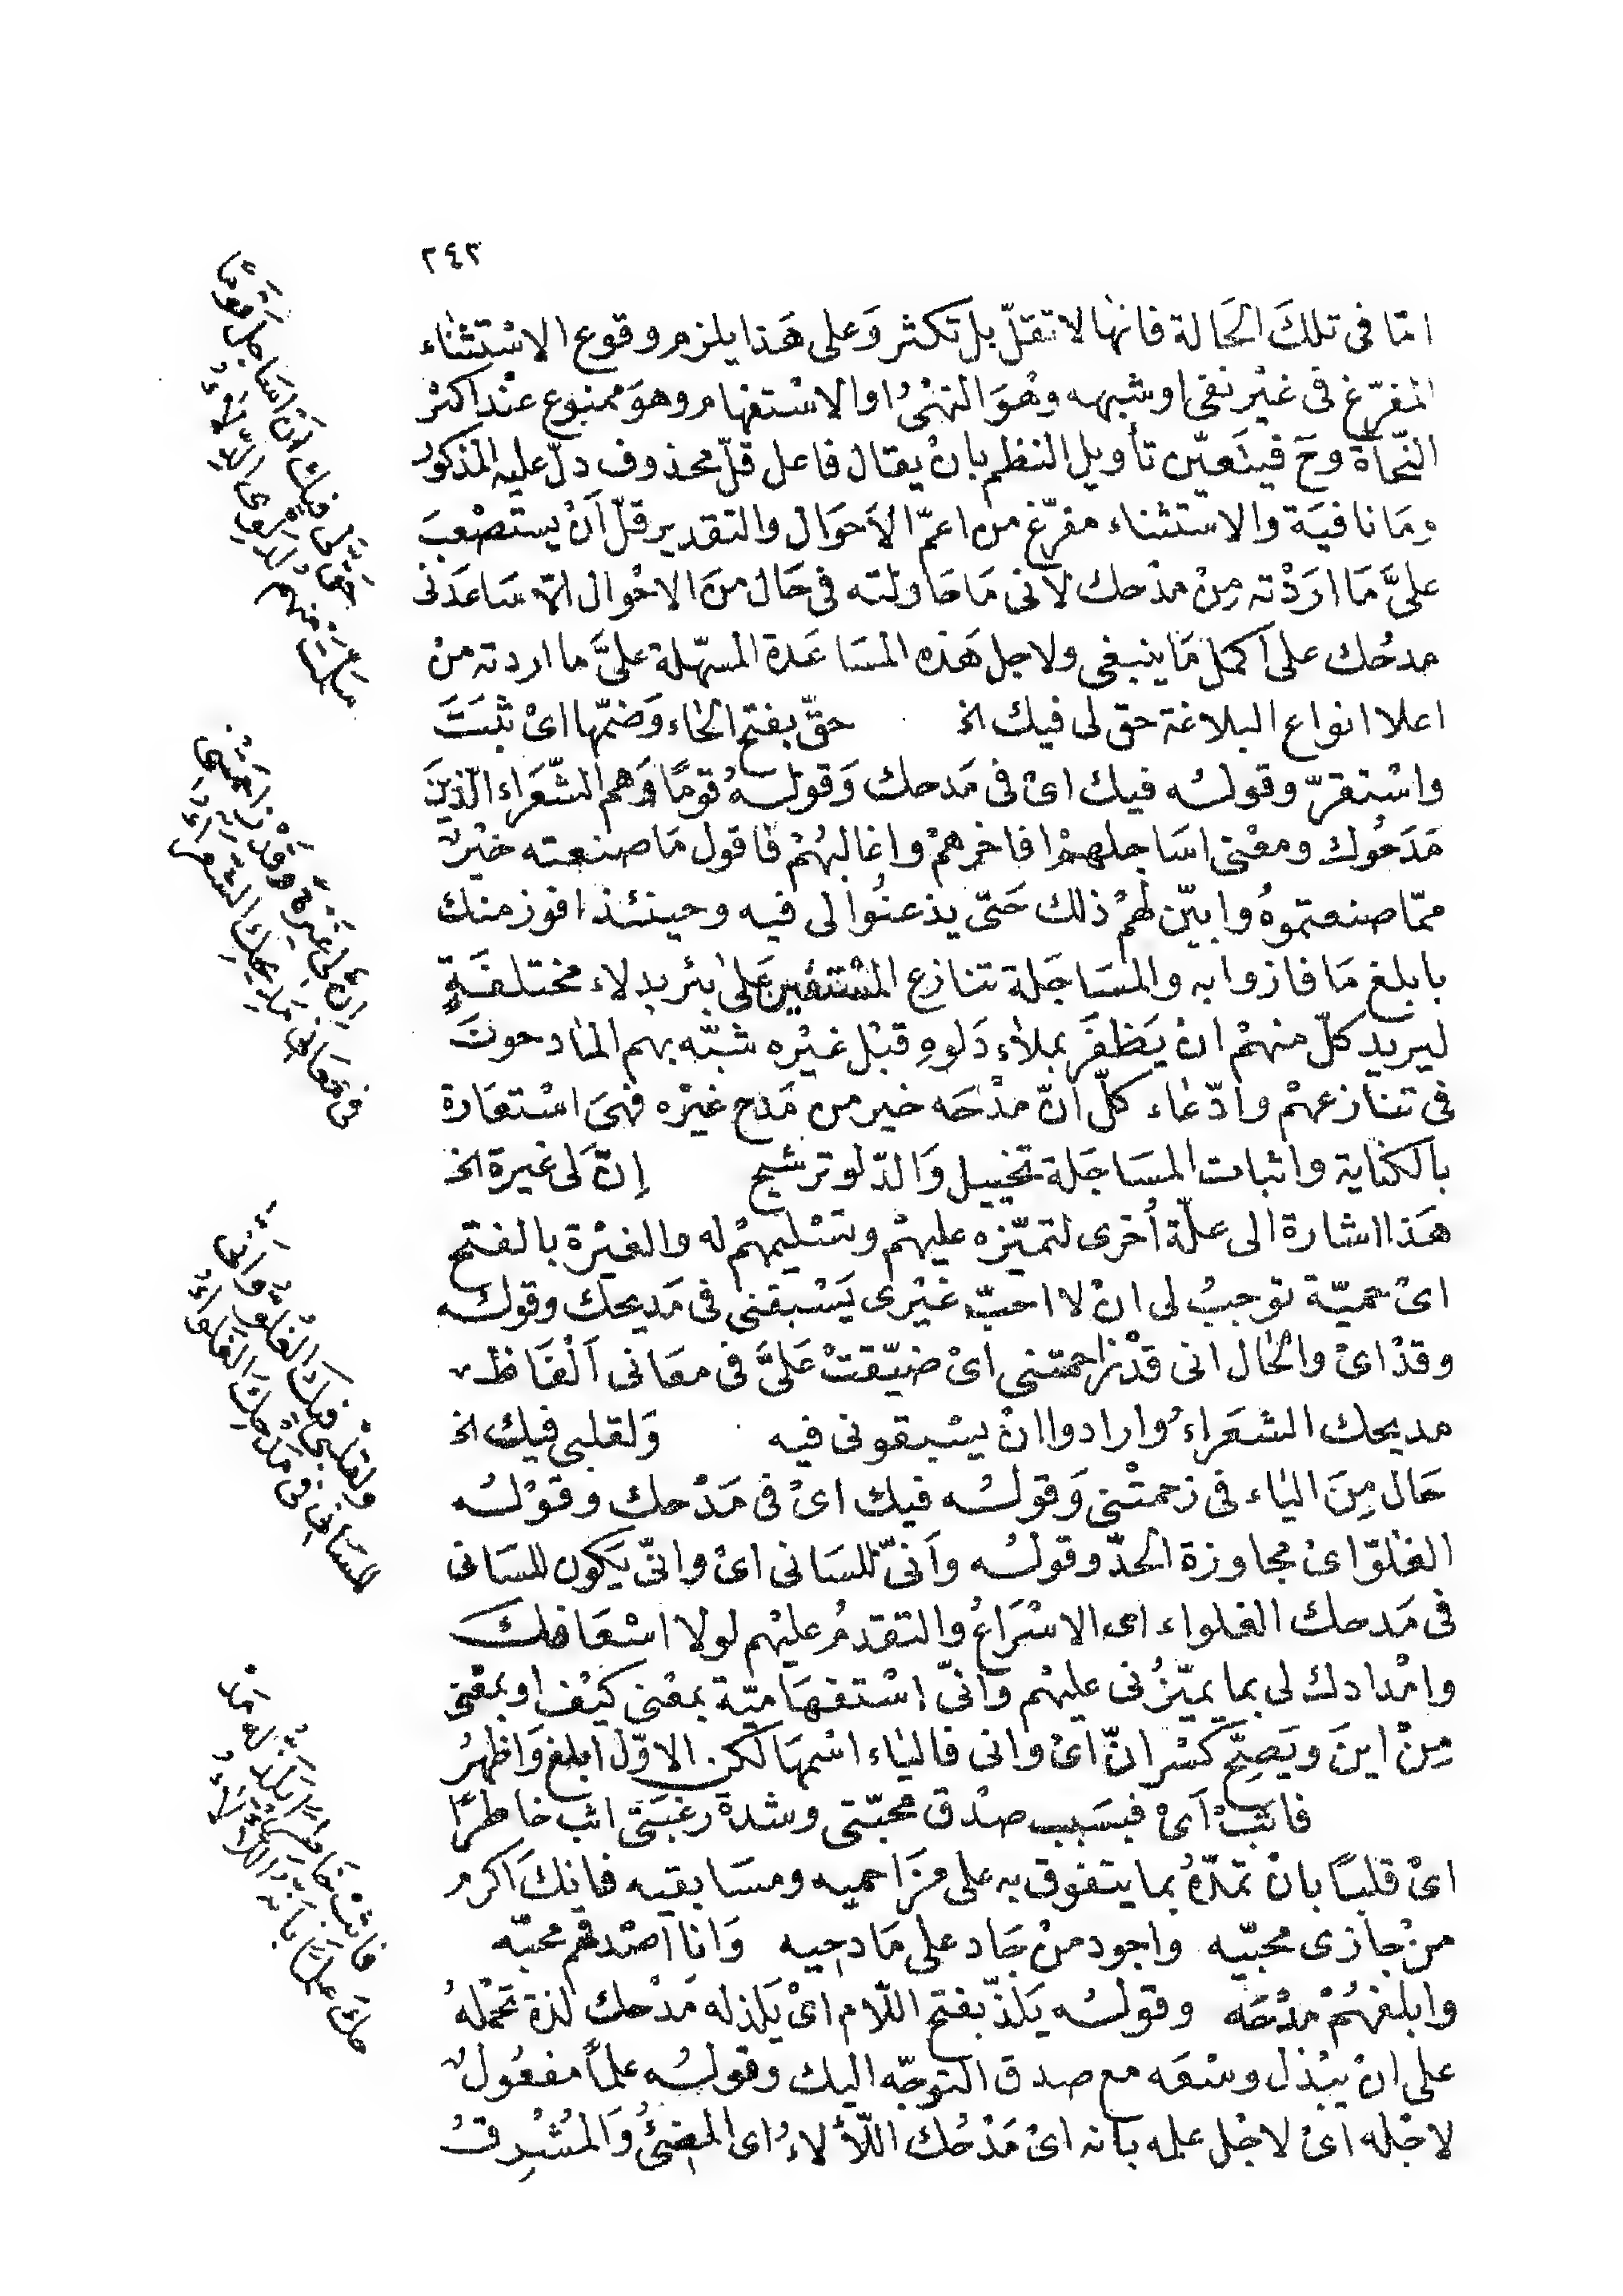 ٢٤٢
امّا فى تلكَ الحَالة فانها لا تقلّ بل تكثر وَعلى هَذا يلزم وقوع الاسْتثناء
المفرّغ فى غيْر نفى او شبهه وهْوَ النهْىُ او الاسْتفهام وهوَ ممنوع عنْد اكثرْ
النّحاة وحَ فيتَعيّن تأويل النظم بانْ يقال فاعل قلّ محذوف دلّ عليه المذكورُ
وَمَا نافيَة والاستثناء مفرّغ من اعمّ الاَحوَال والتقدير قلّ اَنْ يستصْعبَ
علىَّ مَا ارَدْته مِنْ مدْحك لانى مَا حَاولته فى حَال منَ الاحْوال الاّ سَاعدَنى
مدحُك على اَكمل مَا ينبغى ولاجل هَذه المسَاعَدة المسهّلة علىَّ ما اردته منْ
اعلا انواع البلاغة حق لى فيك الخ حقّ بفتح الحاء وَضمّها اىْ ثبَتَ
واسْتقرّ وقولـُه فيك اىْ فى مَدحك وَقولـُه قومًا وَهم الشّعَراء الّذينَ
مَدَحُوك ومعْنى اسَاجلهمْ افاخرهمْ واغالبهُمْ فاقول مَا صنعته خيْرٌ
ممّا صنعتموهُ وابيّن لهُمْ ذلك حَتى يذعنُوا لى فيه وحينئذ افوز منك
بابلغ مَا فازوا به والمسَاجَلة تنازع المسْتقين عَلى بئر بدلاء مختلفَةٍ
ليريد كلّ منهمْ انْ يَظفَر بملأِ دَلوهِ قبْل غيْره شبّه بهم المادحونَ
فى تنازعهمْ وادّعاء كلّ انّ مدْحَه خير من مَدح غيْره فهىَ اسْتعَارة
بالكناية واثبات المسَاجَلة تخييل وَالدّلو ترشيح إنّ لى غيرة الخ
هَذا اشارة الى علّة اُخرى لتميّزه عليهمْ وتسْليمهمْ له والغيْرة بالفتح
اىْ حميّة توجبُ لى انْ لا احبّ غيْرى يَسْبقنى فى مَديحك وقولـه
وقدْ اىْ والحال انى قدْ زاحمتنى اىْ ضيّقتْ عَلىَّ فى معَانى اَلْفَاظ
مديحك الشعَراءُ وارادوا انْ يسْبقونى فيه وَلقلبى فيك الخ
حَال مِنَ الياء فى زحمتْنى وَقولـُه فيك اىْ فى مَدْحك وقوْلـُه
الغلوّ اىْ مجاوزة الحدّ وقولـُه واَنىّ للسَانى اىْ وانّى يَكون للسَانى
فى مَدحك الغلواء اى الاسْرَاعُ والتقدمُ عليْهم لولا اسْعَافك
وامْدادك لى بما يميّزُنى عليهْم وَانىّ اسْتفهَاميّة بمعْنى كيْف او بمعْنى
مِنْ اينَ ويَصحّ كسْر انّ اىْ وانى فالياء اسْمهَا لكن الاوّل ابلغ وَاظهرُ
فاثبْ اَىْ فبسَبب صدْق محبّتى وشدة رغبَتى اثب خاطرًا
اىْ قلبًا بانْ تمدّهُ بما يتفوق به على مزَاحميه ومسَابقيه فانكَ اكرم
منْ جازى محبّيه واجود منْ جَاد على مَادحيه وَانا اصْدقهم محبّه
وابلغهُمْ مدْحَه وقولـُه يَلذّ بفتح اللّام اىْ يَلذ له مَدْحك لذة تحمْلهُ
على انْ يبْذل وسْعَه مع صدق التوجّه اليك وقولـُه علماً مفعُول
لاجْله اىْ لاجْل علمه بانه اىْ مَدْحُك اللّأ لاءُ اى المضىُّ وَالمُشْرقُ
حَقَّ لى فيكَ أَنْ اُسَاجِلَ قَوْمًا
سَلَّمَتْ مِنهم لدلوى الدِّلاَءُ
إنَّ لى غَيْرَةً وقَدْ زَاحَمَتْنِى
فى مَعَانِى مَدِيحِكَ الشُّعَرَاءُ
ولِقَلْبى فيكَ الغُلُوُّ وأنَّى
لِلِسَانى فى مَدْحِكَ الغُلَواءُ
فَاثِبْ خَاطِرًا يَلَذُّ لهُ مَدْ
حُكَ عِلمًا بأنّه اللَّأْلاَءُ